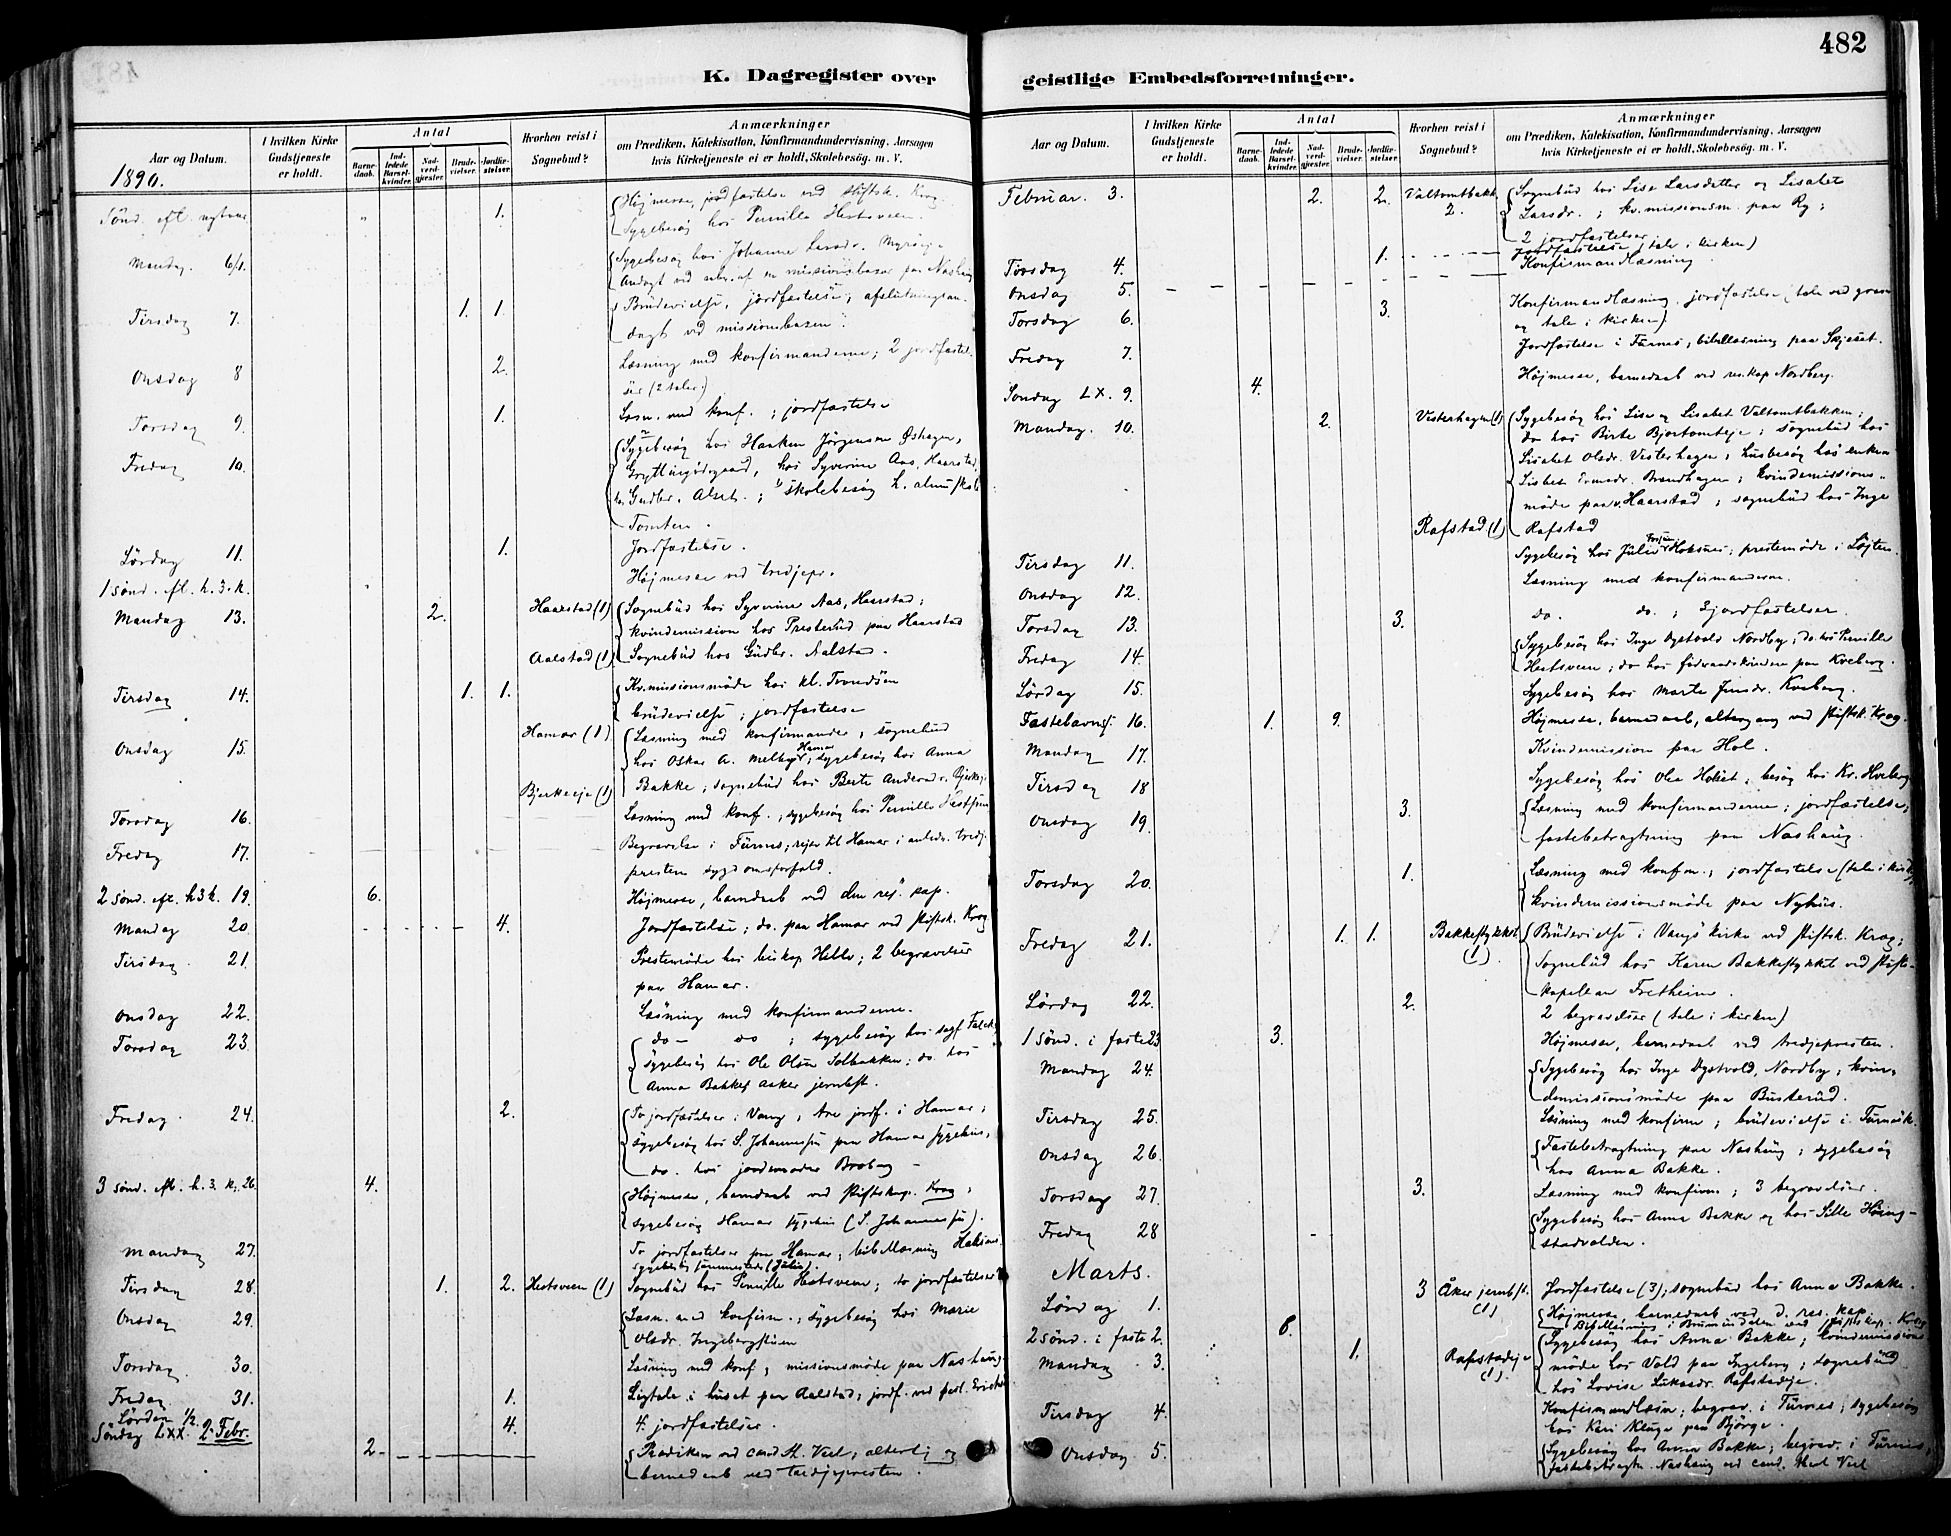 482
K. Dagregister over geistlige Embedsforretninger.
Aar og Datum.
I hvilken Kirke Gudstjeneste er holdt.
Antal
Barnedaab.
Indledede Barselkvinder.
Nadverdgjester.
Brudevielser.
Jordfæstelser.
Hvorhen reist i Sognebud?
Anmærkninger
om Prædiken, Katekisation, Konfirmandundervisning, Aarsagen
hvis Kirketjeneste ei er holdt, Skolebesøg. m. V.
1890.
Sönd. eft. nytaar 1. Højmesse, jordfæstelse ved stiftsk. Krog.
Sygebesøg hos Pernille Hestsveen.
Mandag. 6/1. Sygebesøg hos Johanne Larsdr.
Andagt ved af en missionsbasar paa Nashaug
Tirsdag 7. 1. 1. Brüdevielse, jordfæstelse; afslutningsan-
dagt ved missionbasaren.
Onsdag 8 2. Læsning med konfirmanderne; 2 jordfæstel-
ser (2 taler)
Torsdag 9. 1. Læsn. med konf.; jordfæstelse
Fredag 10. Sygebesøg hos Haaken Jörgensen Øshagen,
hos Syverine Aas, Haarstad,
Gudbr. Alset.; skolebesøg
Tomten.
Lördag 11. 1. Jordfæstelse.
1 sönd. eft. h. 3. k. Højmesse ved tredjepr.
Mandag 13. 2. Haarstad (1) Sognebüd hos Syverine Aas, Haarstad;
kvindemission hos Presterud paa Haarstad
Aalstad (1) Sognebüd hos Gudbr. Aalstad.
Tirsdag 14. 1. 1. Kv.missionsmøde hos kl.
brüdevielse; jordfæstelse
Onsdag 15. Hamar (1) Læsning med konfirmander; sognebud
hos Oskar A. Melbye, Hamar; sygebesøg hos Anna
Bjerkeeje (1) Bakke; sognebud hos Berte Andersd.
Torsdag 16. Læsning med konf.; sygebesøg hos Pernille
Fredag 17. Begravelse i Fürnes; rejse til Hamar i anledn. tredj.
presten sygdomsforfald.
2 sönd. eft. h 3 k. 19. 6. Højmesse, barnedaab ved den res. kap.
Mandag 20. 4. Jordfæstelse; do. paa Hamar ved stiftsk. Krog
Tirsdag 21. Prestemøde hos biskop Hille; 2 begravelser
paa Hamar.
Onsdag 22. Læsning med konfirmanderne.
Torsdag 23 do - do; sygebesøg hos
sygebesøg hos Ole Olsen Solbakken; do. hos
Anna Bakke, Aaker jernbst.
Fredag. 24. 2. To jordfæstelser i Vang, tre jordf. i Hamar;
sygebesøg hos S. Johannessen paa Hamar sygehus,
do. hos jordemoder Broberg
3 sönd. eft. h. 3. k. 26. 4. Højmesse, barnedaab ved stiftskap. Krog;
sygebesøg Hamar sygehus (S. Johannessen).
Mandag 27. To jordfæstelser paa Hamar; bibellæsning
sygebesøg sammesteds (Julie).
Tirsdag 28. 1. 2. Hestsveen (1) Sognebüd hos Pernille Hestsveen; to jordfæstelser
Onsdag 29. Læsn. med konfirm.; sygebesøg hos Marie
Olsdr. Ingebergstuen
Torsdag. 30. Læsning med konf; missionsmøde paa Nashaug.
Fredag. 31. 1. Ligtale i huset paa Aalstad; jordf. ved
Lördag 1/2. 4. 4. jordfæstelser.
Söndag LXX. 2. Febr. 2 Prædiken ved cand. th. Veel; alterg og
barnedaab ved tredjepresten.
Februar. 3. 2. 2. Valtomtbakk. 2. Sognebüd hos Lise Larsdatter og Lisabet
Larsdr.; kv.missionsm. paa Ry;
2 jordfæstelser
Tirsdag 4. 1. Jordfæstelse (tale i kirken)
Onsdag 5. Konfirmandlæsning
Torsdag 6. 3. Konfirmandlæsning. jordfæstelse (tale ved graven
og tale i kirken)
Fredag 7. Jordfæstelse i Fürnes, bibellæsning paa Skjeset.
Söndag LX. 9. 4. Højmesse, barnedaab ved res.kap Nordberg.
Mandag. 10. 2. Vesterhagen (1) Sygebesøg hos Lise og Lisabet Valtomtbakken;
do hos Birte Bjortomteje; sognebud hos
Lisabet Olsdr. Vesterhagen; husbesøg hos enken
Lisbet Brandhagen; kvindemissions-
møde paa Haarstad; sognebud hos Inge
Rafstad (1) Rafstad
Tirsdag 11. Sygebesøg hos Julie Hoksnes; prestemøde i Løjten.
Onsdag 12. Læsning med konfirmanderne.
Torsdag 13. 3. do. do.; 3 jordfæstelser
Fredag 14. Sygebesøg hos Inge Dystvold Nordby; do. hos Pernille
Hestsveen; do hos paa Kveberg.
Lördag 15. Sygebesøg hos Marte Jensdr. Kveberg.
Fastelavns 16. 1. 9. Højmesse, barnedaab, altergang ved stiftsk. Krog.
Mandag 17. Kvindemission paa Hol.
Tirsdag 18 Sygebesøg hos Olea Holset; besøg hos Kr. Hveberg
Onsdag 19. 3. Læsning med konfirmanderne; jordfæstelse;
fastebetragtning paa Nashaug.
Torsdag 20. 1. Læsning med konfirm.; jordfæstelse (tale i kirk.)
kvindemissionsmøde paa Nyhus.
Fredag 21. 1. 1. Bakkestykket (1). Brüdevielse i Vangs kirke ved stiftsk. Krog;
Sognebüd hos Karen Bakkestykket ved stifts-
kapellan Fretheim.
Lördag 22. 2. 2 begravelser (tale i kirken)
1 sönd. i faste 23 3. Højmesse, barnedaab ved tredjepresten.
Mandag 24. Sygebesøg hos Inge Dystvold, Nordby; kvin-
demissionsmøde paa Busterud.
Tirsdag 25. Læsning med konfirm; brüdevielse i Fürnesk.
Onsdag 26. Fastebetragtning paa Nashaug; sygebesøg
hos Anna Bakke.
Torsdag 27. 3. Læsning med konfirm.; 3 begravelser.
Fredag 28 Sygebesøg hos Anna Bakke og hos Sille
stadvolden.
Marts.
Lördag 1. 3 Åker jernbst. (1) Jordfæstelse (3); sognebud hos Anna Bakke.
2 sönd. i faste 2. 8. Højmesse, barnedaab ved d. res. kap.
Bibellæsning i Brumundalen ved stiftskap. Krog
Mandag 3. 1. Rafstadeje (1). Sygebesøg hos Anna Bakke; kvindemissions
møde hos Vold paa Ingeberg; sognebud
hos Lovise Lukasdr. Rafstadeje.
Tirsdag 4. Konfirmandlæsn; begrav. i Fürnes; sygebesøg
hos Kari Kluge paa Bjørge.
Onsdag 5. Sygebesøg hos Anna Bakke; begrav. i Fürnes,
fastebetragtn. Nashaug ved cand. theol Veel